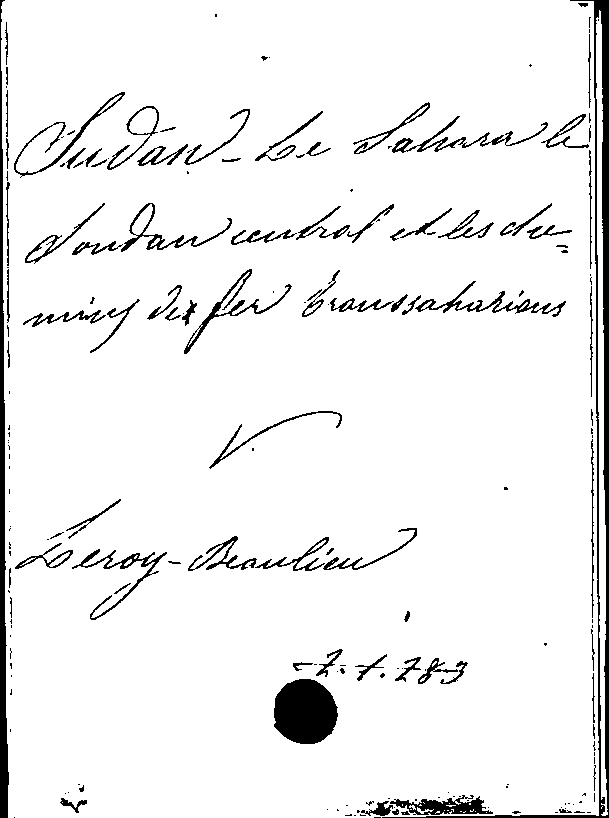 Sudan - Le Sahara le
Soudan central et les che=
mins de fer transsahariens
V.
Leroy-Beaulieu